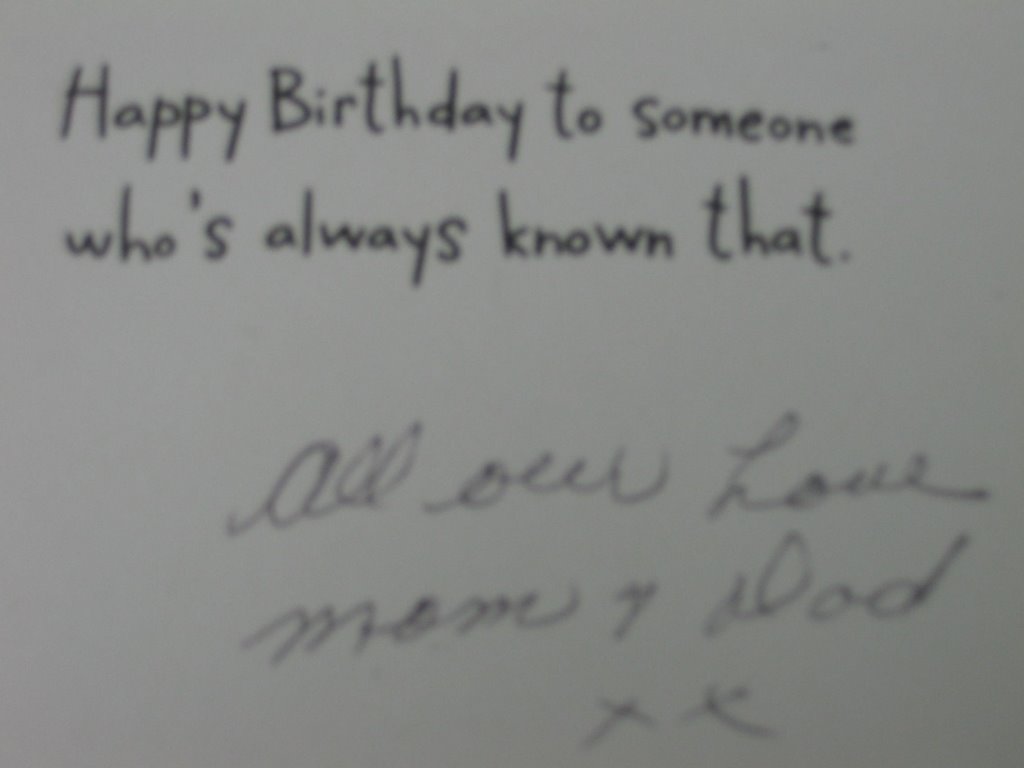 Happy Birthday to someone
who's always known that.
All our Love
Mom & Dad
xx